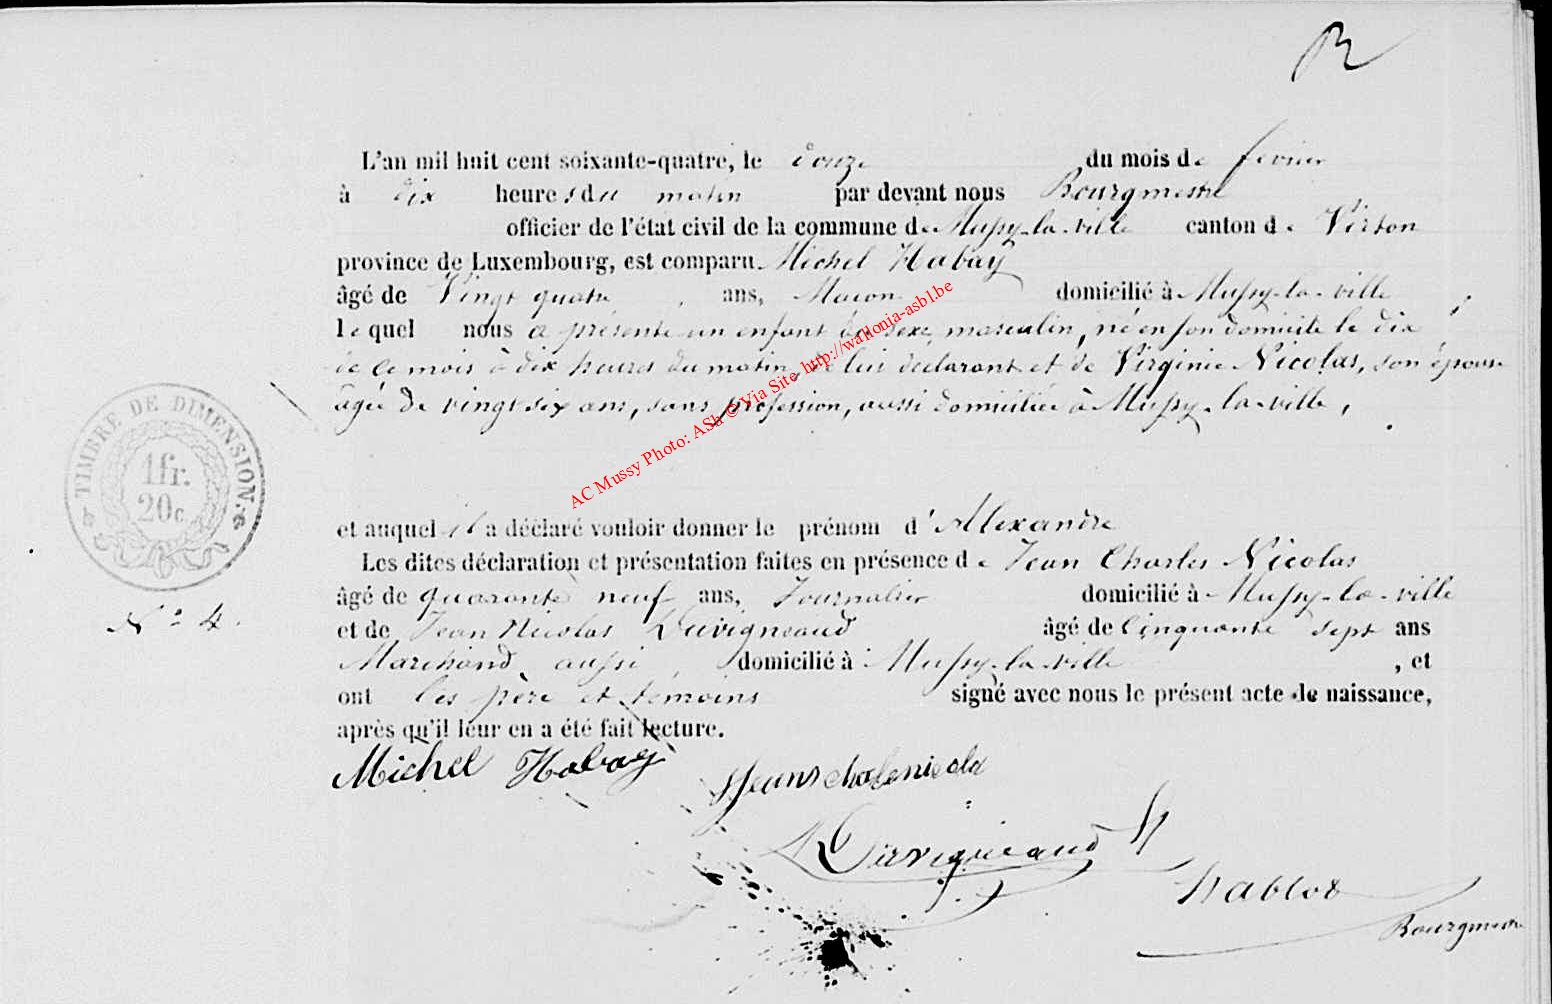 R
L'an mil huit cent soixante-quatre, le douze du mois de fevrier
à dix heures du matin par devant nous Bourgmestre
officier de l'état civil de la commune de Mussy-la-ville canton de Virton
province de Luxembourg, est comparu Michel Habay
âgé de Vingt quatre ans, Macon domicilié à Mussy-la-ville
lequel nous a présenté un enfant du sexe masculin, né en son domicile le dix
de ce mois à dix heures du matin, de lui declarant et de Virginie Nicolas, son épouse
âgée de vingt six ans, sans profession, aussi domiciliée à Mussy-la-ville,
et auquel il a déclaré vouloir donner le prénom d'Alexandre
Les dites déclaration et présentation faites en présence de Jean Charles Nicolas
âgé de quarante neuf ans, Journalier domicilié à Mussy-la-ville
et de Jean Nicolas Duvigneaud âgé de Cinquante sept ans
Marchand aussi domicilié à Mussy-la-ville, et
ont les père et témoins signé avec nous le présent acte de naissance,
après qu'il leur en a été fait lecture.
TIMBRE DE DIMENSION
1fr.
20c
N° 4.
Michel Habay
Duvigneaud
Bourgmestre
AC Mussy Photo: ASh © Via Site http://wallonia-asbl.be